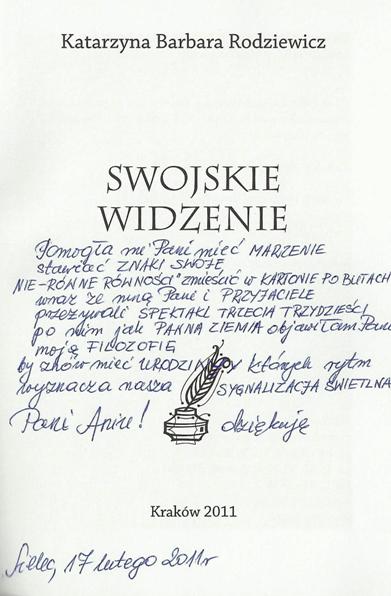 Katarzyna Barbara Rodziewicz
SWOJSKIE
WIDZENIE
Pomogła mi Pani mieć MARZENIE
stawiać ZNAKI SWOJE
NIE-RÓWNE RÓWNOŚCI zmieścić w KARTONIE PO BUTACH
wraz ze mną Pani i PRZYJACIELE
przeżywali SPEKTAKL TRZECIA TRZYDZIEŚCI
po nim jak PARNA ZIEMIA objawiłam Pani
moją FILOZOFIĘ
by znów mieć URODZINY których rytm
wyznacza nasza SYGNALIZACJA ŚWIETLNA
Pani Anno! dziękuję
Kraków 2011
Sielec, 17 lutego 2011r